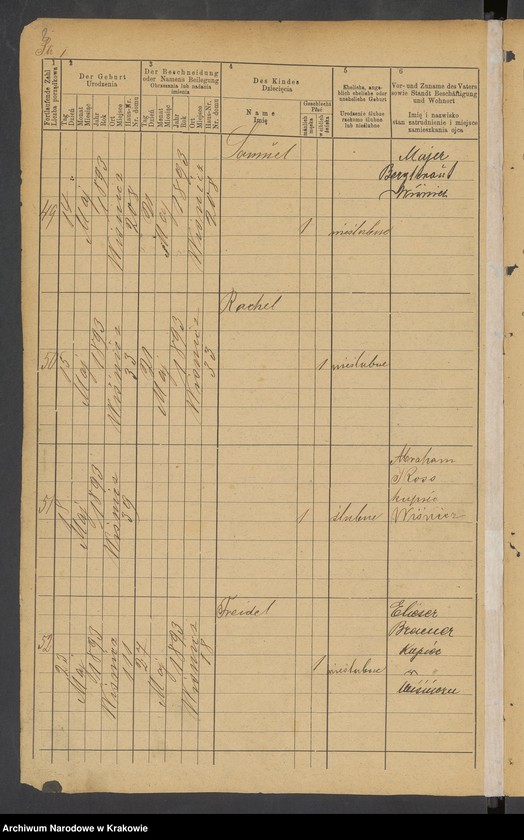 1
2
3
4.
5
6
Fortlaufende Zahl
Liczba porządkowa
Der Geburt
Urodzenia
Tag
Dzień
Monat
Miesiąc
Jahr
Rok
Ort
Miejsce
Haus-Nr.
Nr. domu
Der Beschneidung
oder Namens Beilegung
Obrzezania lub nadania
imienia
Tag
Dzień
Monat
Miesiąc
Jahr
Rok
Ort
Miejsce
Haus-Nr.
Nr. domu
Des Kindes
Dziecięcia
Name
Imię
Geschlecht
Płeć
männlich
męska
weiblich
żeńska
Eheliche, ange-
blich eheliche oder
uneheliche Geburt
Urodzenie ślubne
rzekomo ślubne
lub nieślubne
Vor- und Zuname des Vaters
sowie Standt Beschäftigung
und Wohnort
Imię i nazwisko
stan zatrudnienie i miejsce
zamieszkania ojca
49
14
Maj
1893
Wiśnicz
208
21
Maj
1893
Wiśnicz
208
Samuel
1
nieślubne
Majer
Wiśnicz
50
Maj
1893
Wiśnicz
33
20
Maj
1893
Wiśnicz
33
Rachel
1
nieślubne
51
Maj
1893
Wiśnicz
39
1
ślubne
Abraham
Koss
kupiec
Wiśnicz
52
Maj
1893
Wiśnicz
27
Maj
1893
Wiśnicz
18
Freidel
1
nieślubne
Elieser
kupiec
Archiwum Narodowe w Krakowie